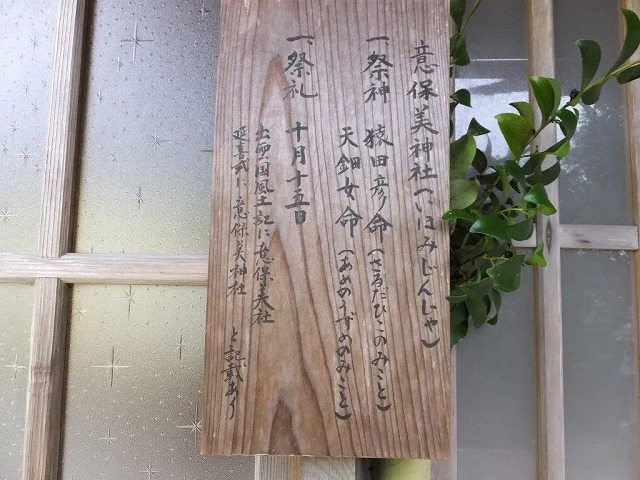 意保美神社(いほみじんじゃ)
一、祭神 猿田彦命(さるたひこのみこと)
天鈿女命(あめのうずめのみこと)
一、祭礼 十月十五日
出雲国風土記に意保美社
延喜式に意保美神社 と記載あり